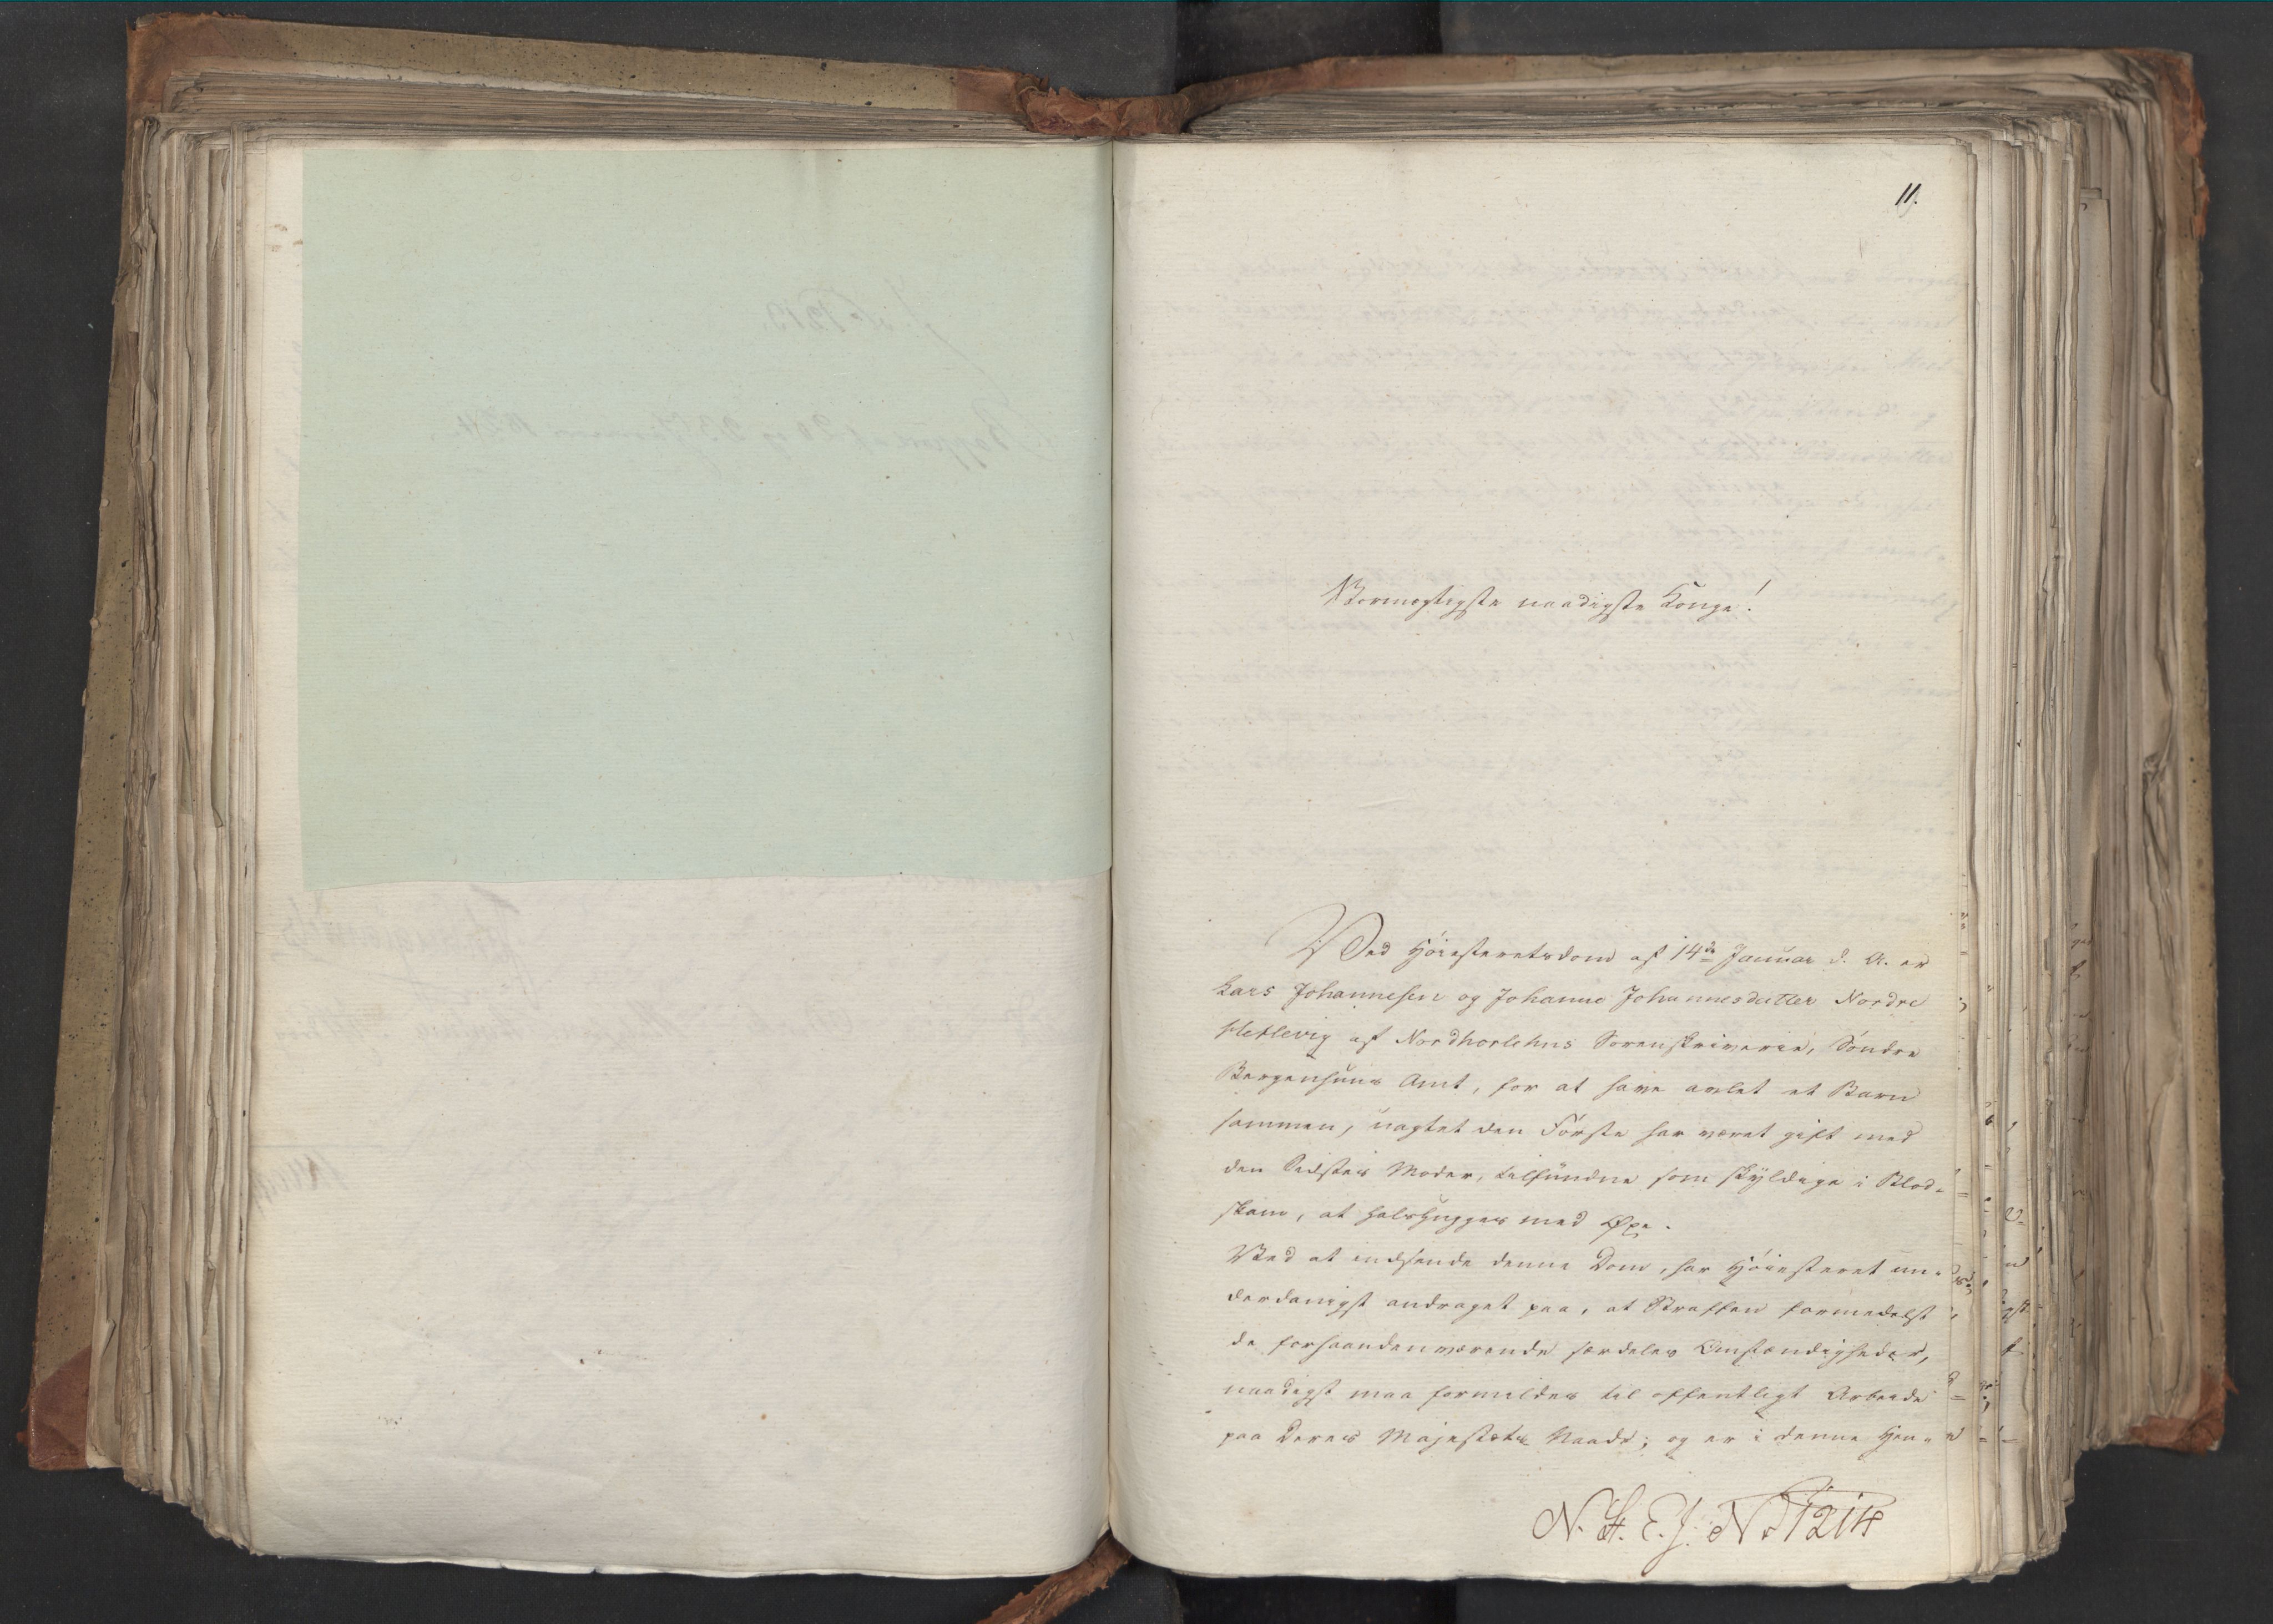 11.
Stormægtigste naadigste Konge!
Ved Høiesteretsdom af 14de Januar d. A. er
Lars Johannesen og Johanne Johannesdatter Nordre
Hetlevig af Nordhorlehns Sorenskriverie, Søndre
Bergenhuus Amt, for at have avlet et Barn
sammen, uagtet den Første har været gift med
den Sidstes Moder, tilfundne som skyldige i Blod-
skam, at halshugges med Øxe.
Ved at indsende denne Dom, har Høiesteret un-
derdanigst andraget paa, at Straffen formedelst
de forhaandenværende særdeles Omstændigheder,
naadigst maa formildes til offentligt Arbeide
paa Deres Majestæts Naade; og er i denne Hen-
N. St. E. J. No 1214